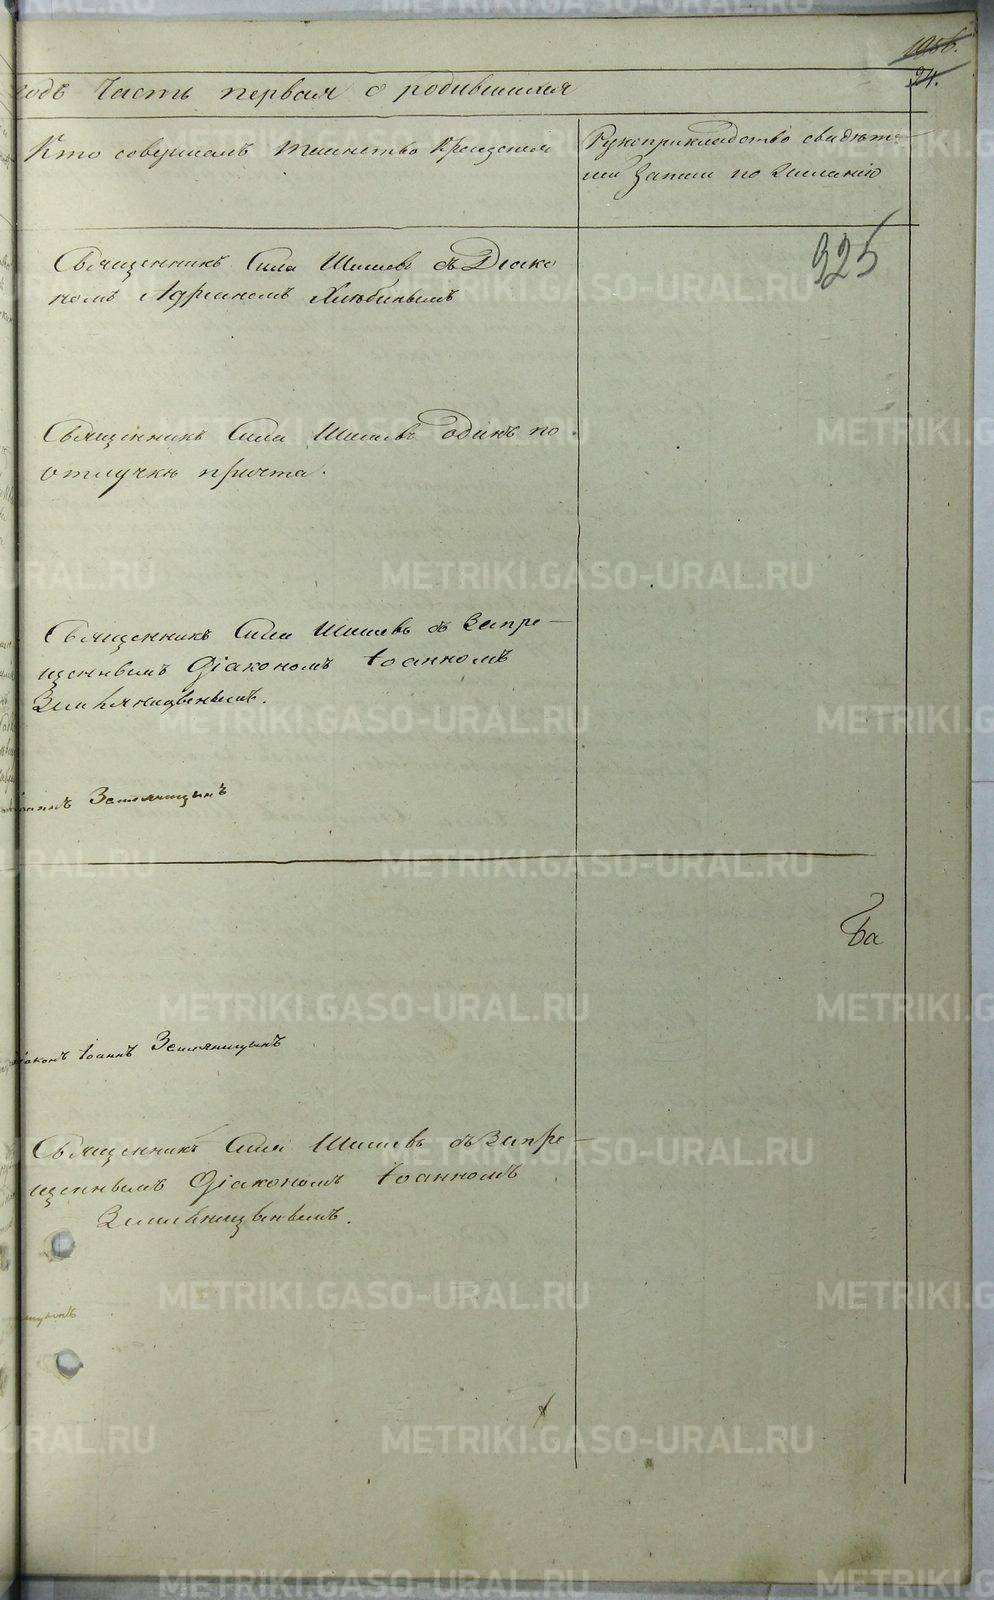 1056.
24.
годъ Часть первая о родившихся
Кто совершалъ таинство Крещения
Рукоприкладство свидѣте-
лей Записи по желанію
325
Священникъ Сила Шишевъ съ Диако
номъ Адрианомъ Хлюбинымъ
Священникъ Сила Шишевъ одинъ по
отлучкѣ причта.
Священникъ Сила Шишевъ съ Запре-
щеннымъ Діакономъ Іоанномъ
Земляницынымъ.
Іоаннъ Земляницынъ
Ба
Діаконъ Іоаннъ Земляницынъ
Священникъ Сила Шишевъ съ Запре-
щеннымъ Діакономъ Іоанномъ
Земляницынымъ.
METRIKI.GASO-URAL.RU